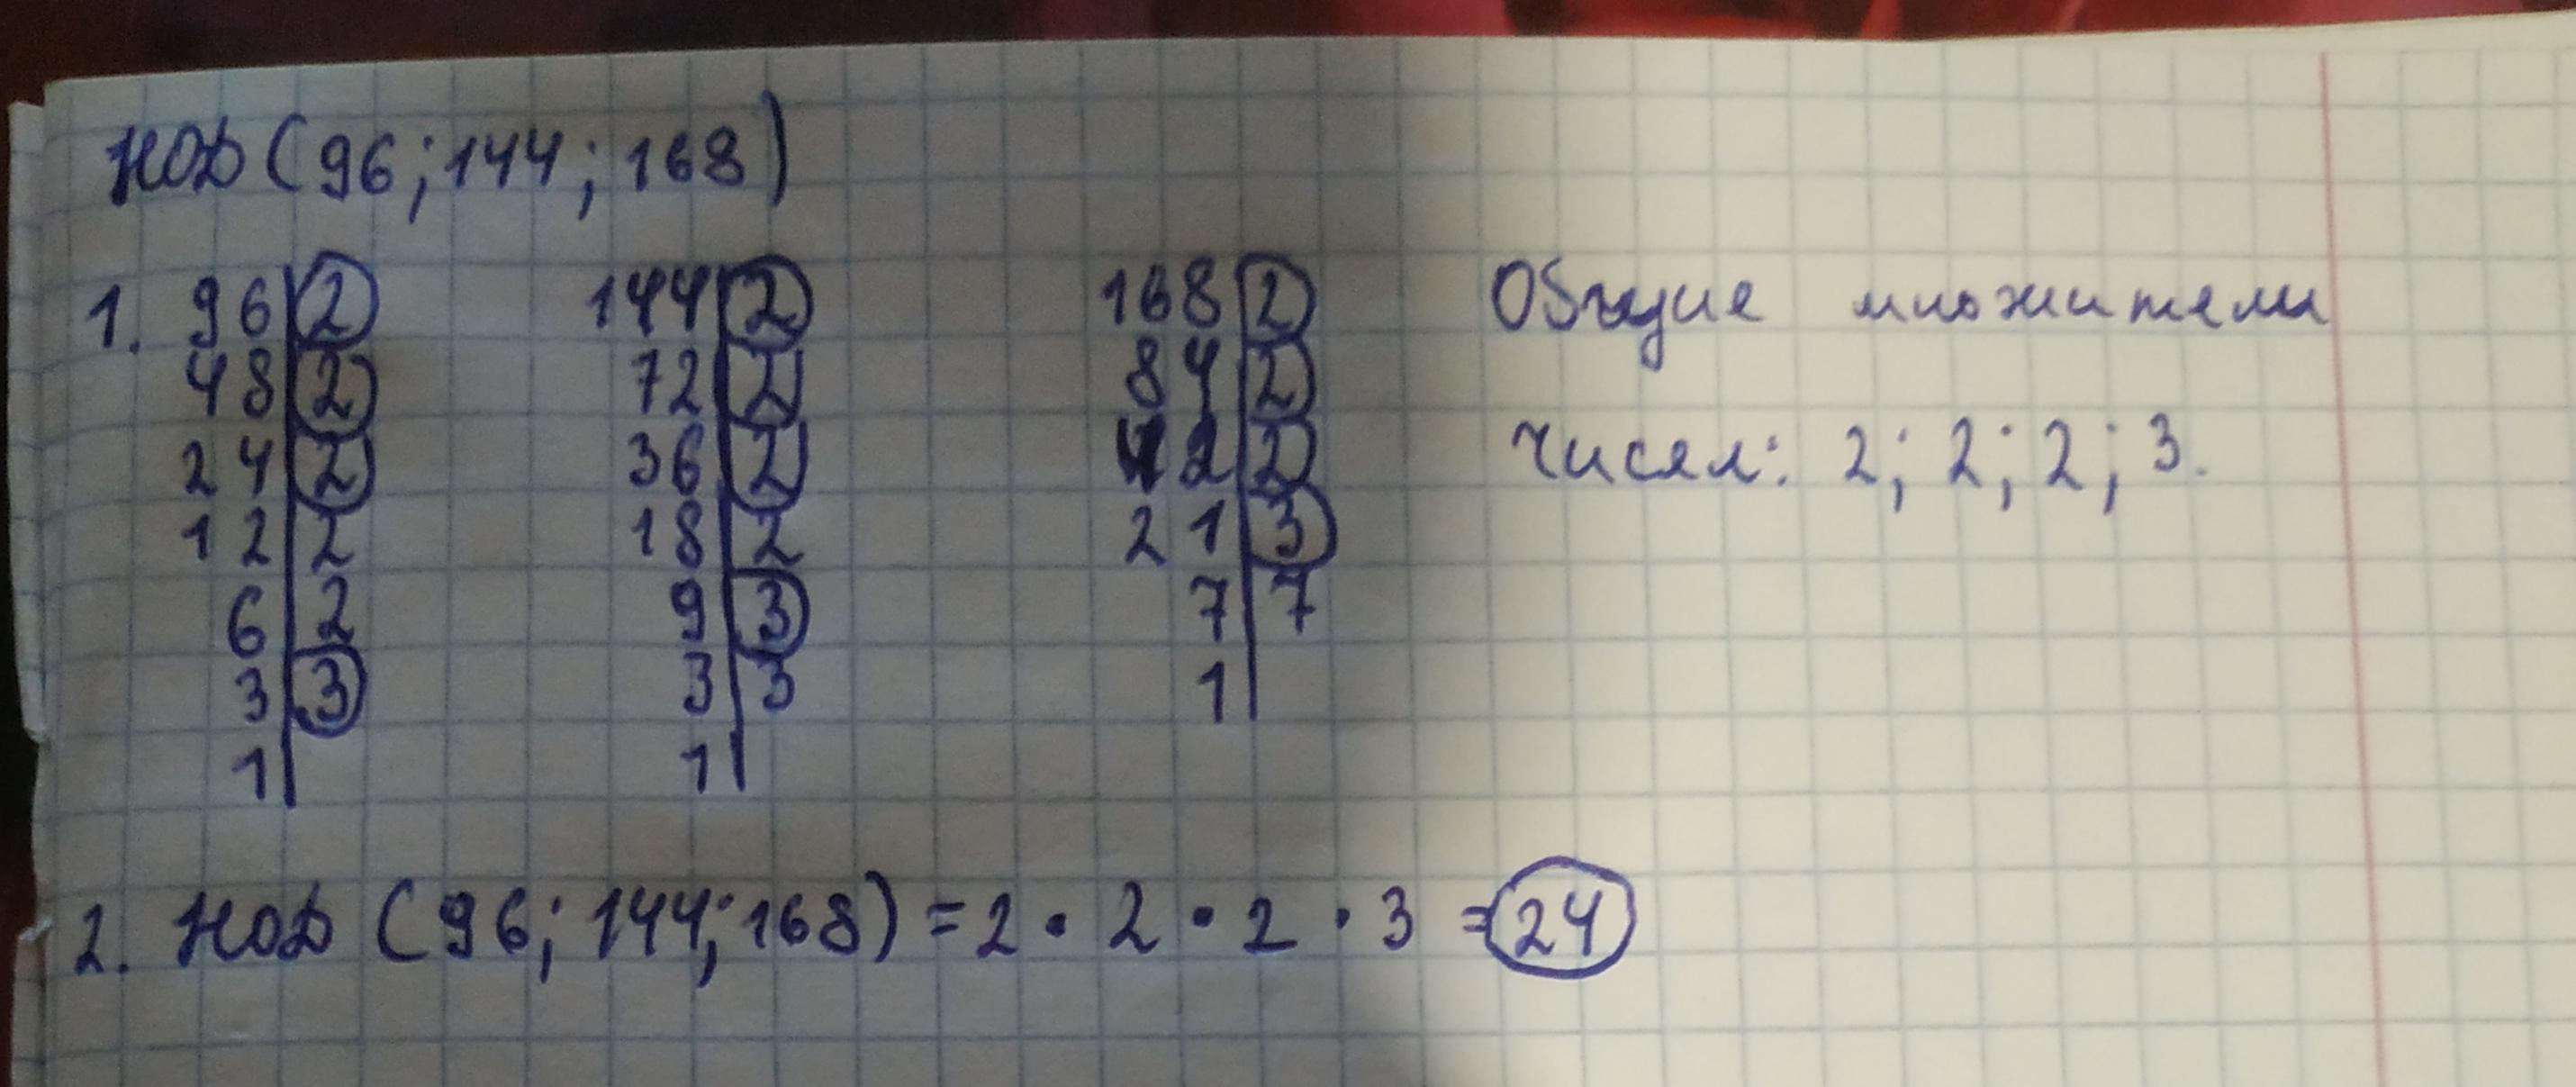 НОД (96; 144; 168)
1. 96 | 2 144 | 2 168 | 2 Общие множители
48 | 2 72 | 2 84 | 2
24 | 2 36 | 2 42 | 2 чисел: 2; 2; 2; 3.
12 | 2 18 | 2 21 | 3
6 | 2 9 | 3 7 | 7
3 | 3 3 | 3 1 |
1 | 1 |
2. НОД (96; 144; 168) = 2 · 2 · 2 · 3 = 24